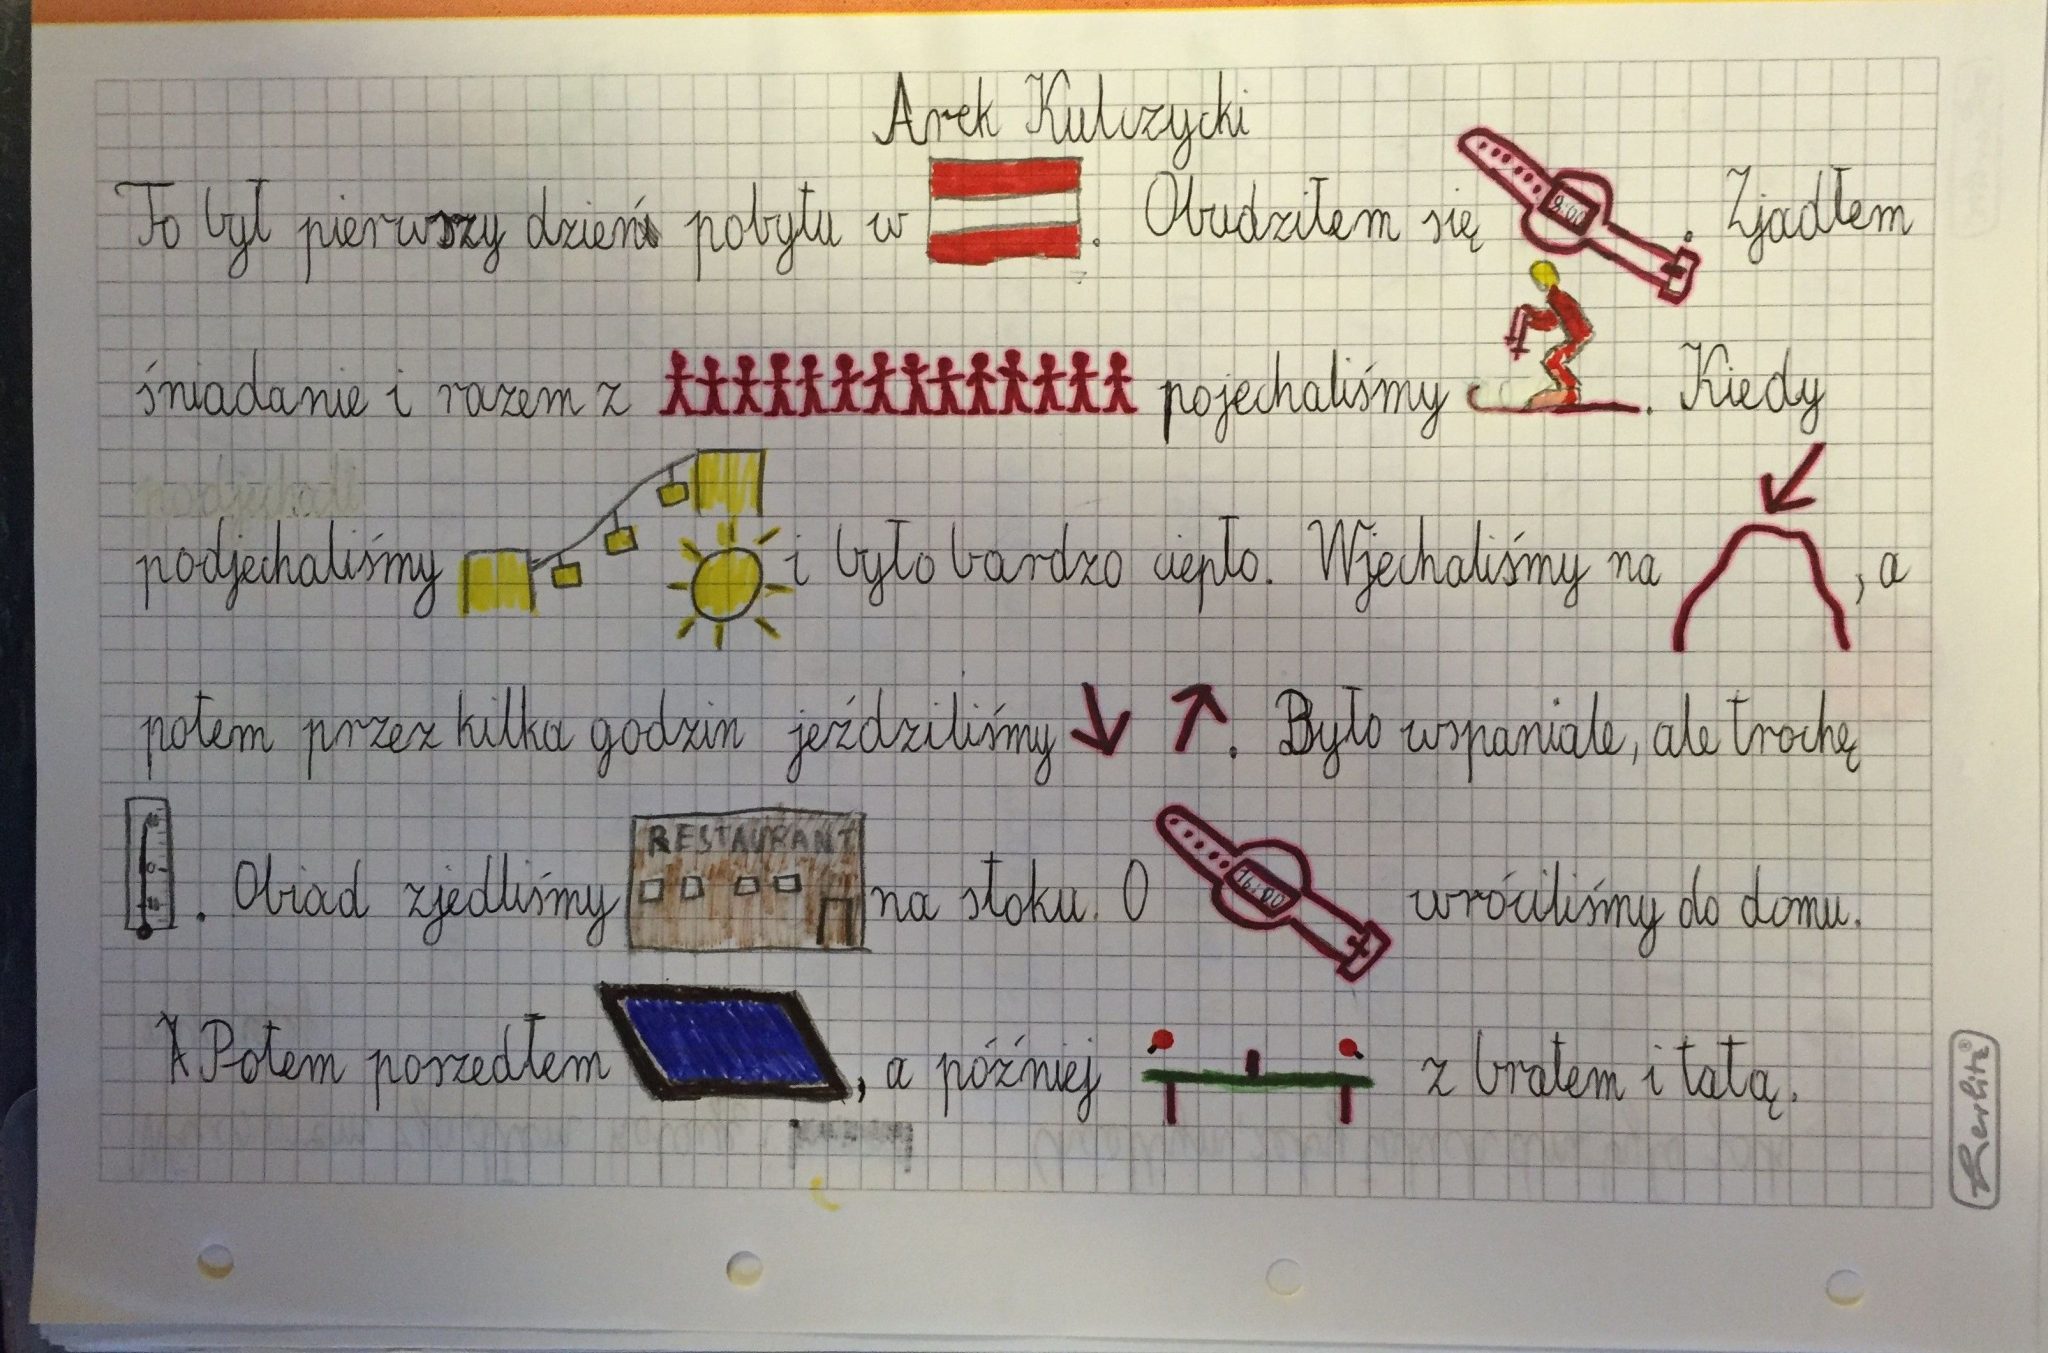 Arek Kulczycki
To był pierwszy dzień pobytu w . Obudziłem się 8:00 . Zjadłem
śniadanie i razem z pojechaliśmy . Kiedy
podjechaliśmy i było bardzo ciepło. Wjechaliśmy na , a
potem przez kilka godzin jeździliśmy . Było wspaniale, ale trochę
. Obiad zjedliśmy RESTAURANT na stoku. O 16:00 wróciliśmy do domu.
Potem poszedłem , a później z bratem i tatą.
Herlitz